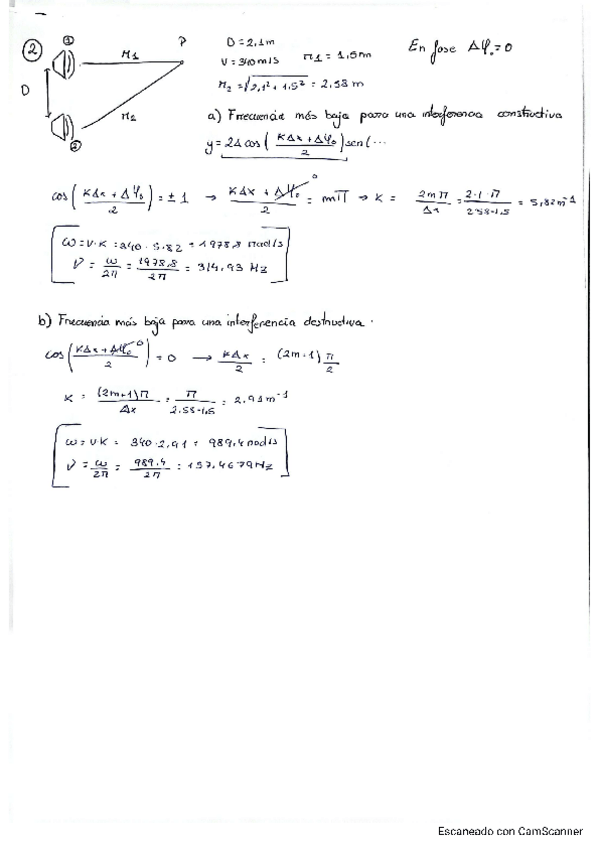 ②
①
r1
P
D
r2
②
D = 2,1m
V = 340 m/s r1 = 1,5m
r2 = √2,1² + 1,5² = 2,58 m
En fase Δφ₀ = 0
a) Frecuencia más baja para una interferencia constructiva
y = 2A cos( KΔx + Δφ₀ / 2 ) sen(...
cos( KΔx + Δφ₀ / 2 ) = ± 1 → KΔx + Δφ₀ 0 / 2 = mπ → K = 2mπ / Δx = 2·1·π / 2.58-1.5 = 5,82 m⁻¹
ω = v·K = 340 · 5.82 = 1978,8 rad/s
ν = ω / 2π = 1978,8 / 2π = 314.93 Hz
b) Frecuencia más baja para una interferencia destructiva.
cos( KΔx + Δφ₀ 0 / 2 ) = 0 → KΔx / 2 = (2m+1) π / 2
K = (2m+1)π / Δx = π / 2.58-1.5 = 2.91 m⁻¹
ω = vK = 340 · 2,91 = 989.4 rad/s
ν = ω / 2π = 989.4 / 2π = 157.4679 Hz
Escaneado con CamScanner